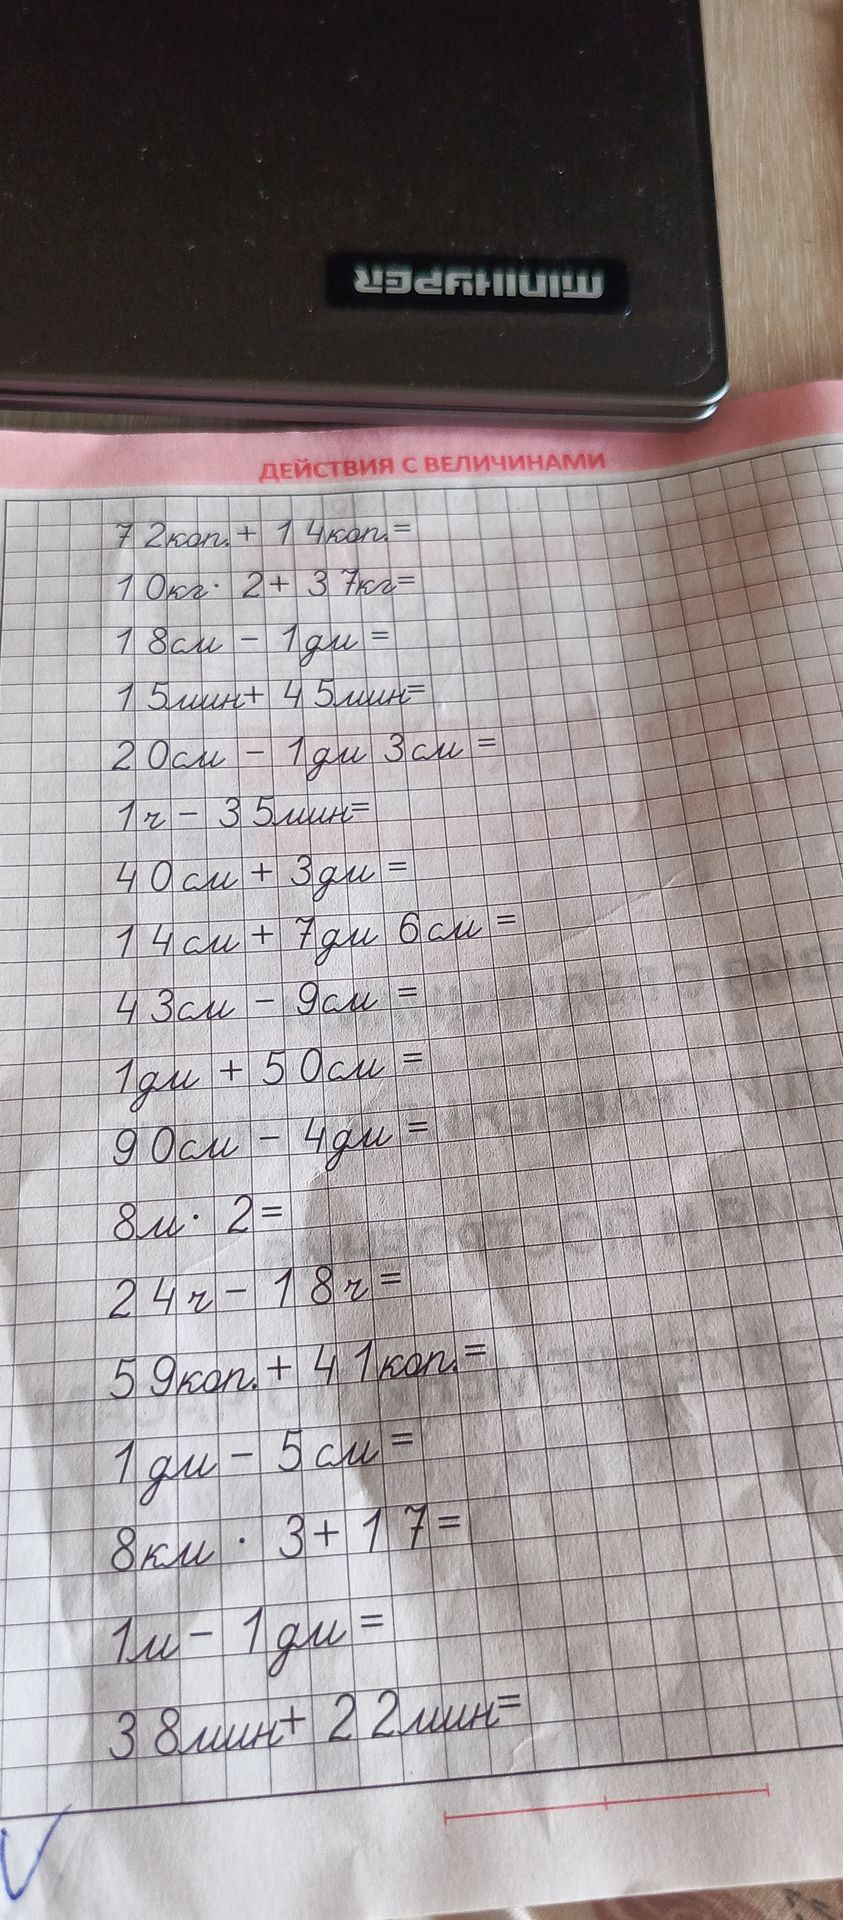 MINIHYPER
ДЕЙСТВИЯ С ВЕЛИЧИНАМИ
72коп.+ 14коп.=
10кг· 2+ 37кг=
18см - 1дм =
15мин+ 45мин=
20см - 1дм 3см =
1ч - 35мин=
40см + 3дм =
14см + 7дм 6см =
43см - 9см =
1дм + 50см =
90см - 4дм =
8м· 2=
24ч - 18ч=
59коп.+ 41коп.=
1дм - 5см =
8км · 3+17=
1м - 1дм =
38мин+ 22мин=